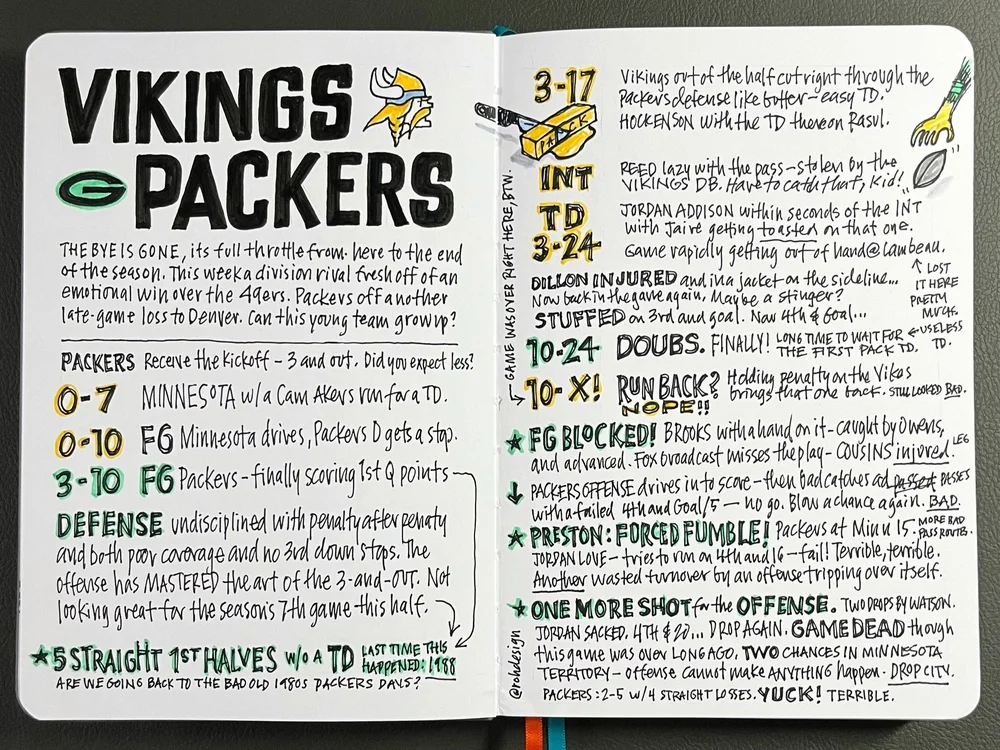 VIKINGS
G PACKERS
THE BYE IS GONE, its full throttle from here to the end
of the season. This week a division rival fresh off of an
emotional win over the 49ers. Packers off another
late-game loss to Denver. Can this young team grow up?
PACKERS Receive the kickoff – 3 and out. Did you expect less?
0-7 MINNESOTA w/a Cam Akers run for a TD.
0-10 FG Minnesota drives, Packers D gets a stop.
3-10 FG Packers – finally scoring 1st Q points
DEFENSE undisciplined with penalty after penalty
and both poor coverage and no 3rd down stops. The
offense has MASTERED the art of the 3-and-OUT. Not
looking great for the season's 7th game this half.
★ 5 STRAIGHT 1ST HALVES W/O A TD LAST TIME THIS
HAPPENED: 1988
ARE WE GOING BACK TO THE BAD OLD 1980s PACKERS DAYS?
3-17 Vikings out of the half cut right through the
Packers defense like butter – easy TD.
HOCKENSON with the TD thereon Rasul.
PACK
INT REED lazy with the pass – stolen by the
VIKINGS DB. Have to catch that, Kid!
TD JORDAN ADDISON within seconds of the INT
with Jaire getting toasted on that one.
3-24 Game rapidly getting out of hand @ Lambeau.
↑ LOST
IT HERE
PRETTY
MUCH.
DILLON INJURED and in a jacket on the sideline...
Now back in the game again. Maybe a stinger?
STUFFED on 3rd and goal. Now 4th & Goal...
10-24 DOUBS. FINALLY! LONG TIME TO WAIT FOR
THE FIRST PACK TD.
← USELESS
TD.
← GAME WAS OVER RIGHT HERE, BTW.
10-X! RUN BACK? Holding penalty on the Vikes
NOPE!! brings that one back. STILL LOOKED BAD.
★ FG BLOCKED! BROOKS with a hand on it – caught by Owens,
and advanced. Fox broadcast misses the play – COUSINS injured. LEG
↓ PACKERS OFFENSE drives in to score – then bad catches ad passed PASSES
with a failed 4th and Goal/5 — no go. Blow a chance again. BAD.
★ PRESTON: FORCED FUMBLE! Packers at Minn 15. MORE BAD
PASS ROUTES.
JORDAN LOVE – tries to run on 4th and 16 – fail! Terrible, terrible.
Another wasted turnover by an offense tripping over itself.
★ ONE MORE SHOT for the OFFENSE. TWO DROPS BY WATSON.
JORDAN SACKED, 4TH & 20... DROP AGAIN. GAME DEAD though
this game was over LONG AGO. TWO CHANCES IN MINNESOTA
TERRITORY – offense cannot make ANYTHING happen. DROP CITY.
PACKERS: 2-5 W/ 4 STRAIGHT LOSSES. YUCK! TERRIBLE.
@rohdesign